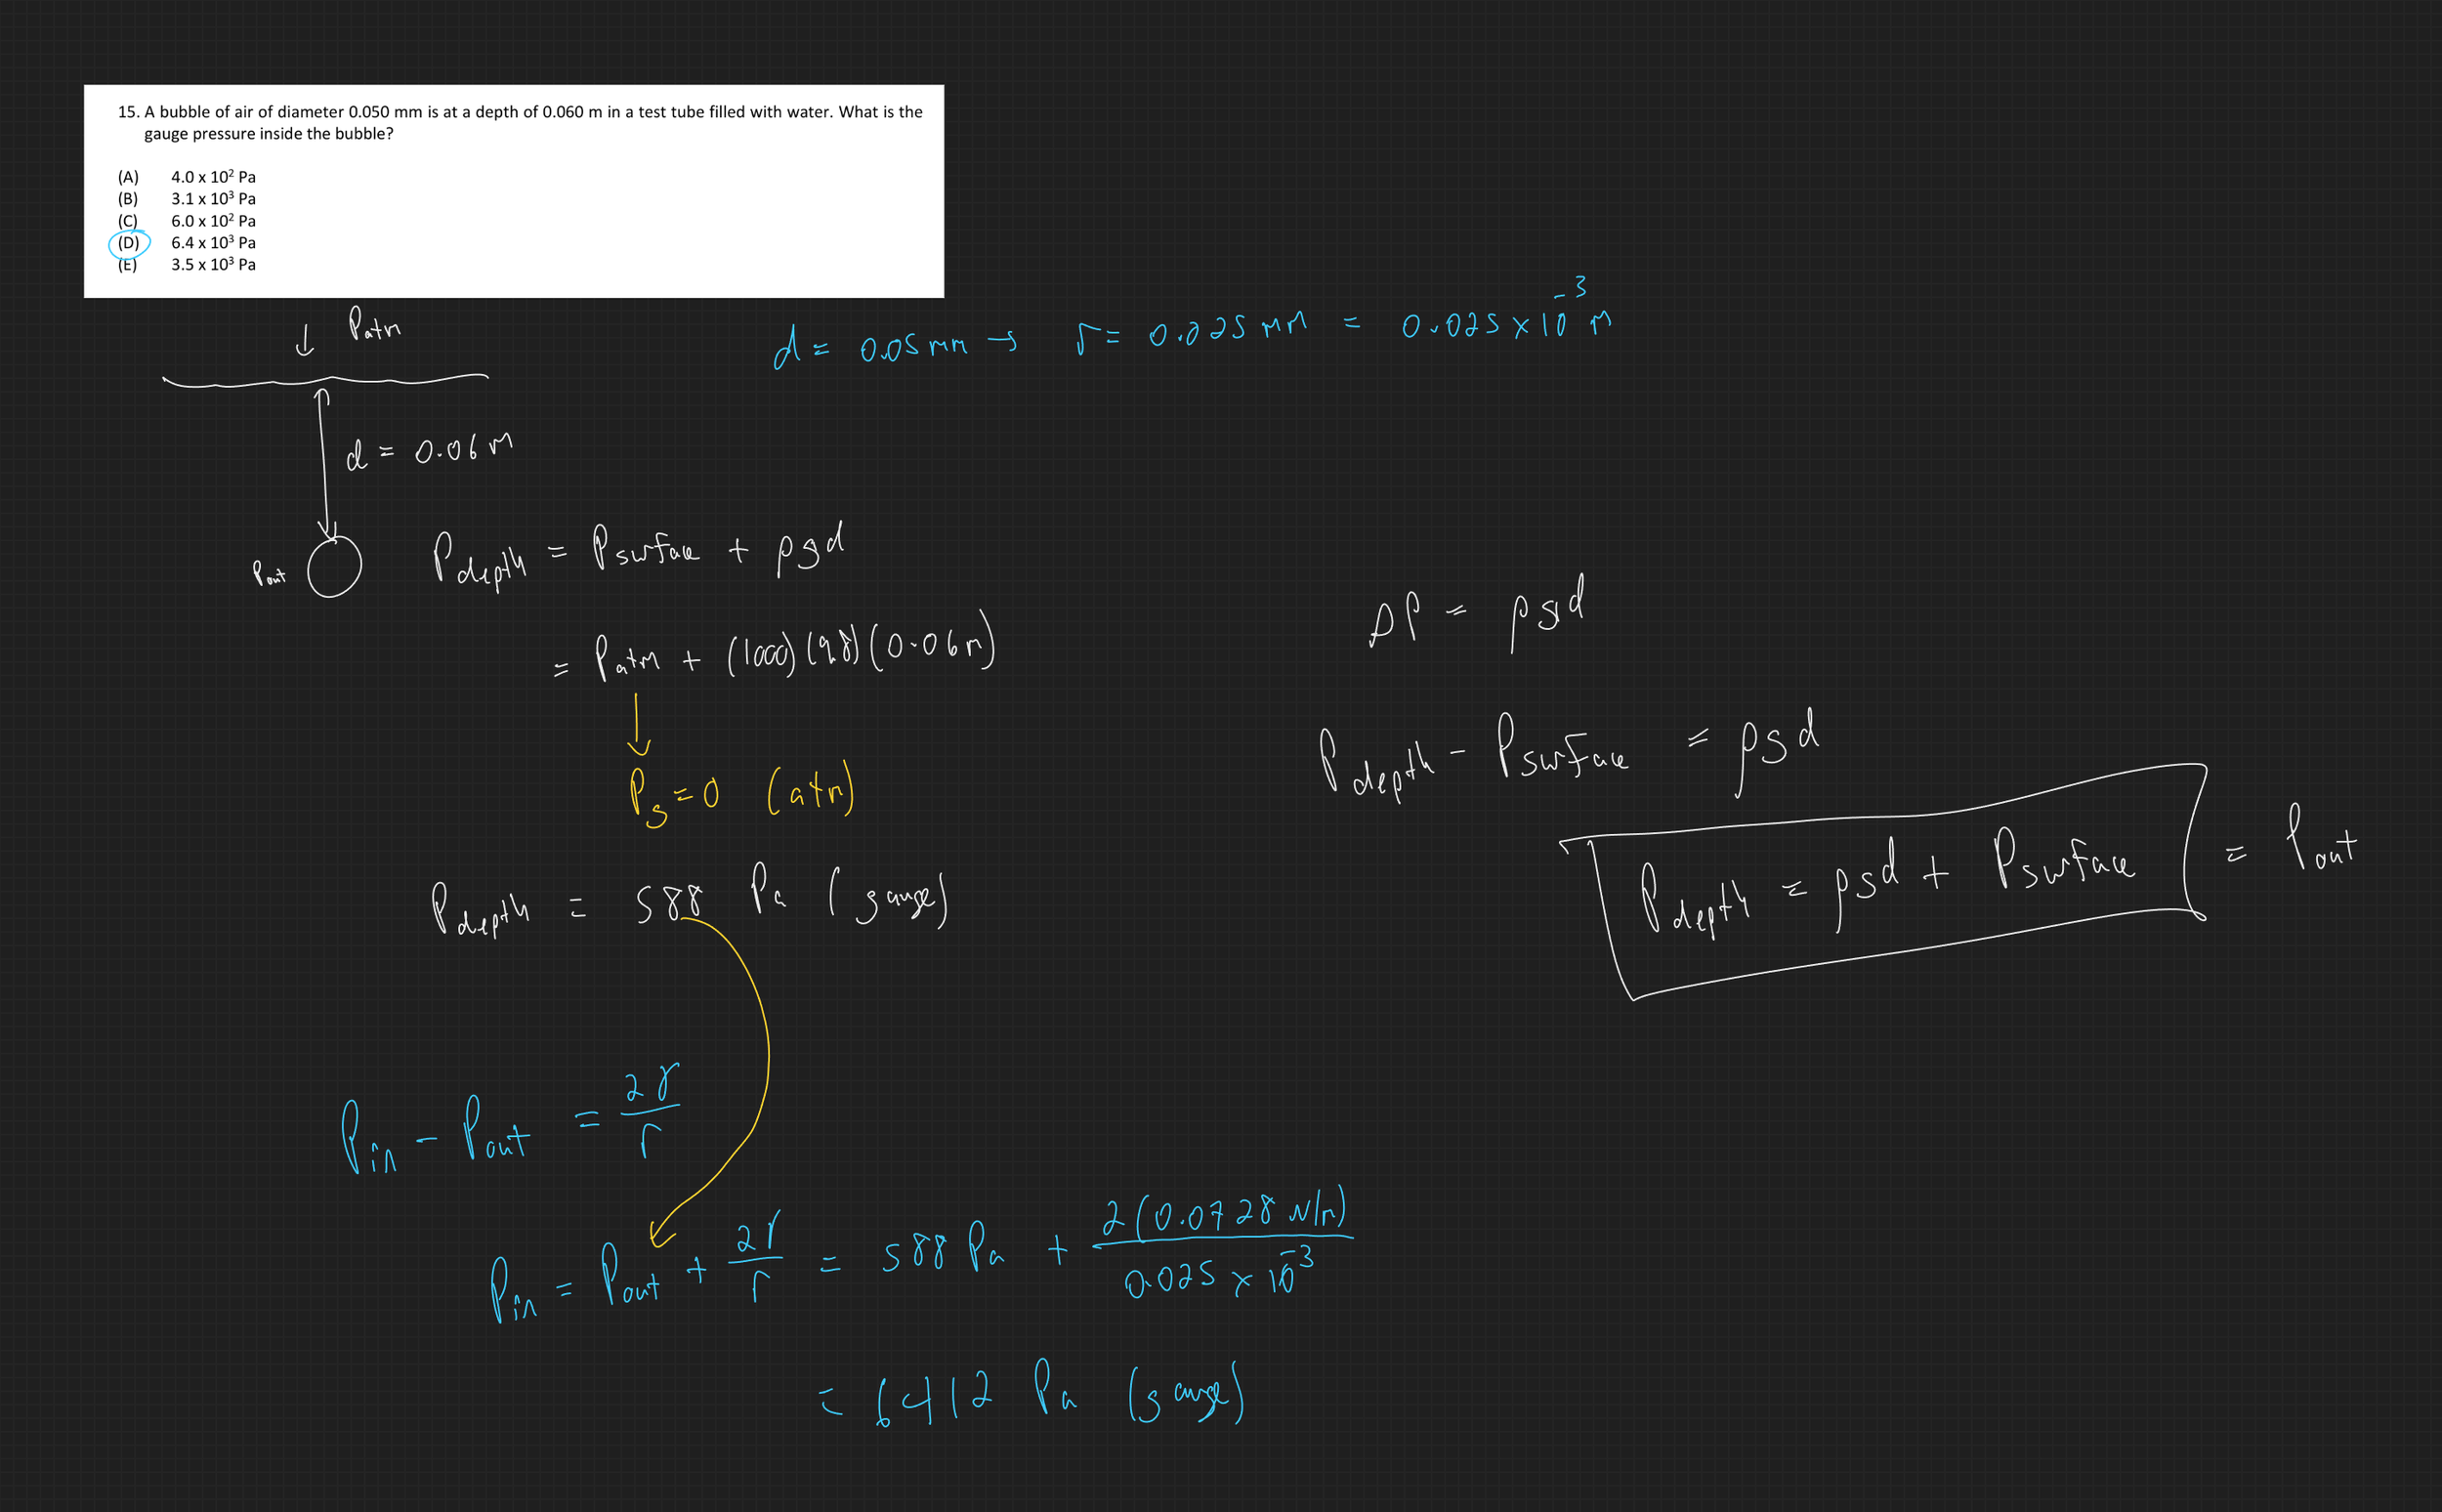 15. A bubble of air of diameter 0.050 mm is at a depth of 0.060 m in a test tube filled with water. What is the
gauge pressure inside the bubble?
(A) 4.0 x 10² Pa
(B) 3.1 x 10³ Pa
(C) 6.0 x 10² Pa
(D) 6.4 x 10³ Pa
(E) 3.5 x 10³ Pa
↓ Patm
d = 0.05 mm → r = 0.025 mm = 0.025 × 10⁻³ m
d = 0.06 m
Pout
Pdepth = Psurface + ρgd
= Patm + (1000)(9.8)(0.06m)
↓
Pg = 0 (atm)
Pdepth = 588 Pa (gauge)
ΔP = ρgd
Pdepth - Psurface = ρgd
Pdepth = ρgd + Psurface = Pout
Pin - Pout = 2γ/r
Pin = Pout + 2γ/r = 588 Pa + 2(0.0728 N/m)/0.025 × 10⁻³
= 6412 Pa (gauge)